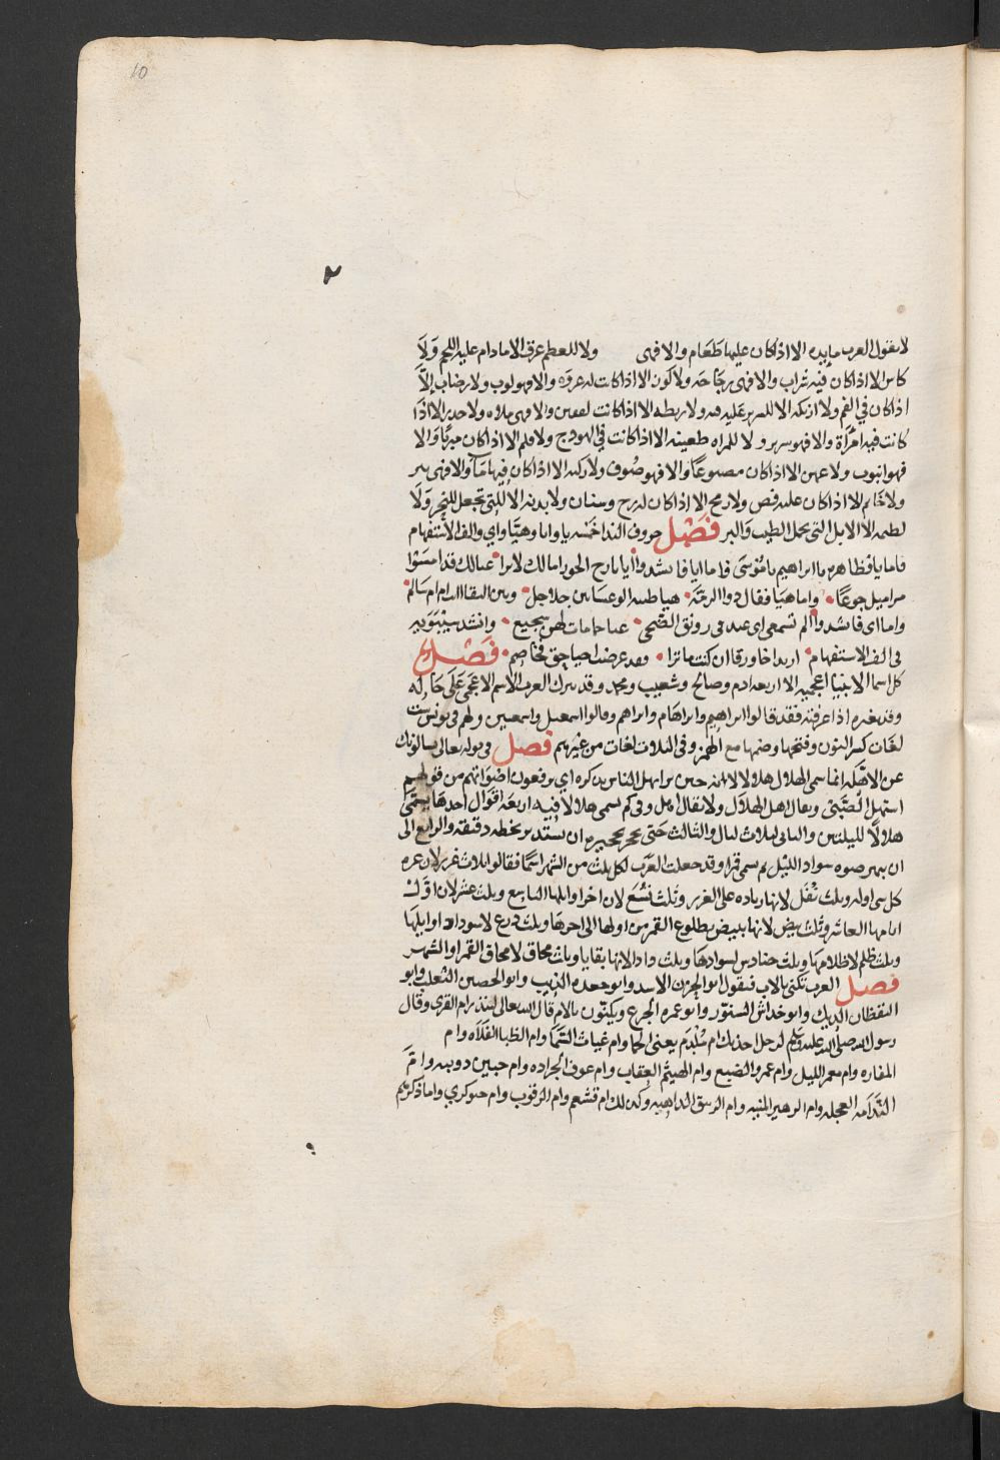 10
٢
لا تقول العرب مائده الا اذا كان عليها طَعَام والا فهى ولا للعظم عرق الا مادام عليه اللحم وَلَا
كاس الا اذا كان فيه شراب والا فهى زجاجه ولا كوز الا اذا كانت له عروه والا فهو كوب ولا رضاب إلَّا
اذا كان في الفم ولا اريكه الا للسرير عَليه قبه ولا ريطه الا اذا كانت لفقين والا فهى ملاه ولا خدر الا اذَا
كانت فيه امْرَأة والا فهو ستر ولا للمراه ظعينه الا اذا كانت في الهودج ولا قلم الا اذا كان مبريًّا وَالا
فهو انبوب ولا عهن الا اذا كان مصبوغًا والا فهو صُوف ولا ركيه الا اذا كان فيها مَآ والا فهى بير
ولا خَاتم الا اذا كان عليه فص ولا رمح الا اذا كان له زج وسنان ولا بدنه الا للتى تجعل للنحر وَلَا
لطيمه الا الابل التى تحمل الطيب والبز فَصْل حروف الندا خمْسه يا وايا وهيَّا واي والف الاستفهام
فاما يا فظاهر يا ابراهيم يا مُوسَى واما ايا فانشدوا أيا بارح الجوزا مالك لا ترا عيالك قد امسَوْا
مراميل جوعًا واما هيَا فقال ذوا الرمَّة هيا ظبيه الوعسا بين جلاجل وبين النقا اانت ام ام سَالم
واما اى فانشدوا الم تسمعى اى عبد فى رونق الضحى غنا حمامات لهن سجيع وانشد سيبَويه
فى الف الاستفهام ازيد اخا ورقا ان كنت ثائرا فقد عرضت احنا حق فخاصم فصل
كل اسما الانبيا اعجميه الا اربعه ادم وصالح وشعيب ومحمد وقد تترك العرب الاسم الاعجمى عَلَى حَاله
وقد تغيره اذا عربته فقد قالوا ابراهيم وابراهَام وابراهم وقالوا اسمعيل واسمعين ولهم فى يونس ست
لغَات كسر النون وفتحها وضمها مع الهمز وفى الثلاث لغات من غير همز فصل فى قوله تعالى يسالونك
عن الاهله انما سمى الهلال هلالا لانه حين يرا يهل الناس بذكره اي يرفعون اصْواتهم من قولهم
استهل الصَّبى ويقال اهل الهلَال ولا يقال اهل وفى كم يسمى هلالا فيه اربعَه اقوَال احدهَا يسمَّى
هلالًا لليلتين والثانى لثلاث ليال والثالث حَتى يحجر وتحجيره ان يستدير بخطه دقيقه والرابع الى
ان يبهر ضوه سواد الليْل ثم يسمى قمرا وقد جعلت العَرب لكل ثلث من الشهر اسمًا فقالوا ثلاث غرر لان غره
كل شى اوله وثلث نُفَل لانها زياده على الغرر وثَلث تُسَع لان اخر ايامها التاسع وثلث عشر لان اوّلَ
ايامها العاشر وثُلث بيض لانها تبيض بطلوع القمر من اولها الى اخرهَا وثلث درع لاسوداد اوايلهَا
وثلث ظلم لاظلامهَا وثلث حنادس لسوادهَا وثلث دادا لانها بقايا وثلث محاق لامحاق القمر او الشهر
فصل العرب تكنى بالاب فتقول ابو الحرث الاسد وابو جعده الذيب وابو الحصين الثعلب وابو
اليقظان الديك وابو خداش السنّور وابو عمره الجوع ويكنّون بالام قال الله تعالى لتنذر ام القرى وقال
رسول الله صلى الله عليه وسلم لرجل اخذتك ام مَلْدَم يعنى الحما وام غياث السّما وام الظبا الفلَاه وام
المفازه وام معمر الليل وام عمرو الضبع وام الهيثم العقاب وام عوف الجراده وام حبين دويبه وامّ
النَّدَامه العجله وام الرهير المنيه وام الربيق الداهيه وكذلك ام قشعم وام الرقوب وام حبوكري واما ذكرهم